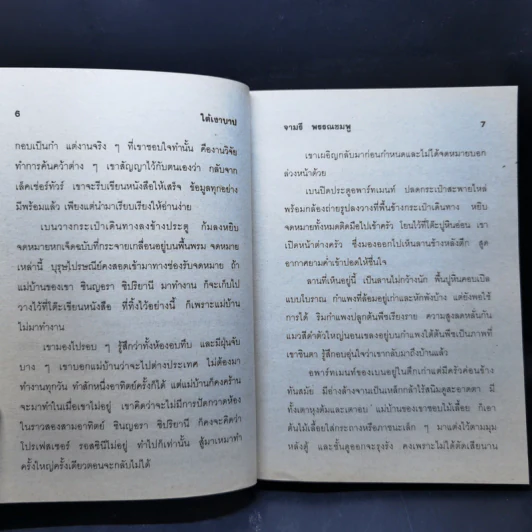 6
ใต้เงาบาป
กอบเป็นกำ แต่งานจริง ๆ ที่เขาชอบใจทำนั้น คืองานวิจัย
ทำการค้นคว้าต่าง ๆ เขาสัญญาไว้กับตนเองว่า กลับจาก
เล็คเช่อร์ทัวร์ เขาจะรีบเขียนหนังสือให้เสร็จ ข้อมูลทุกอย่าง
มีพร้อมแล้ว เพียงแต่นำมาเรียบเรียงให้อ่านง่าย
เบนวางกระเป๋าเดินทางลงข้างประตู ก้มลงหยิบ
จดหมายหกเจ็ดฉบับที่กระจายเกลื่อนอยู่บนพื้นพรม จดหมาย
เหล่านี้ บุรุษไปรษณีย์คงสอดเข้ามาทางช่องรับจดหมาย ถ้า
แม่บ้านของเขา ซินญอรา ซิปริยานี มาทำงาน ก็จะเก็บไป
วางไว้ที่โต๊ะเขียนหนังสือ ที่ทิ้งไว้อย่างนี้ ก็เพราะแม่บ้าน
ไม่มาทำงาน
เขามองไปรอบ ๆ รู้สึกว่าทั้งห้องอบทึบ และมีฝุ่นจับ
บาง ๆ เขาบอกแม่บ้านว่าจะไปต่างประเทศ ไม่ต้องมา
ทำงานทุกวัน ทำสักหนึ่งอาทิตย์ครั้งก็ได้ แต่แม่บ้านก็คงคร้าน
จะมาทำในเมื่อเขาไม่อยู่ เขาคิดว่าจะไม่มีการปัดกวาดห้อง
ในราวสองสามอาทิตย์ ซินญอรา ซิปริยานี ก็คงจะคิดว่า
โปรเฟสเซอร์ รอสซินีไม่อยู่ ทำไปก็เท่านั้น สู้มาเหมาทำ
ครั้งใหญ่ครั้งเดียวตอนจะกลับไม่ได้
จามรี พรรณชมพู
7
เขาเผอิญกลับมาก่อนกำหนดและไม่ได้จดหมายบอก
ล่วงหน้าด้วย
เบนปิดประตูอพาร์ทเมนท์ ปลดกระเป๋าสะพายไหล่
พร้อมกล้องถ่ายรูปลงวางที่พื้นข้างกระเป๋าเดินทาง หยิบ
จดหมายทั้งหมดติดมือไปเข้าครัว โยนไว้ที่โต๊ะปูหินอ่อน เขา
เปิดหน้าต่างครัว ซึ่งมองออกไปเห็นลานข้างหลังตึก สูด
อากาศยามค่ำเข้าปอดให้ชื่นใจ
ลานที่เห็นอยู่นี้ เป็นลานไม่กว้างนัก พื้นปูหินคอบเบิล
แบบโบราณ กำแพงที่ล้อมอยู่เก่าและหักพังบ้าง แต่ยังพอใช้
การได้ ริมกำแพงปลูกต้นพืชเรียงราย ความสูงลดหลั่นกัน
แมวสีดำตัวใหญ่นอนเขลงอยู่บนกำแพงใต้ต้นพืชเป็นภาพที่
เขาชินตา รู้สึกอบอุ่นใจว่าเขากลับมาถึงบ้านแล้ว
อพาร์ทเมนท์ของเบนอยู่ในตึกเก่าแต่มีครัวค่อนข้าง
ทันสมัย มีอ่างล้างจานเป็นเหล็กกล้าไร้สนิมดูสะอาดตา มี
ทั้งเตาหุงต้มและเตาอบ แม่บ้านของเขาชอบไม้เลื้อย ก็เอา
ต้นไม้เลื้อยใส่กระถางหรือภาชนะเล็ก ๆ มาแต่งไว้ตามมุม
หลังตู้ และชั้นดูออกจะรุงรัง คงเพราะไม่ได้ตัดเสียนาน